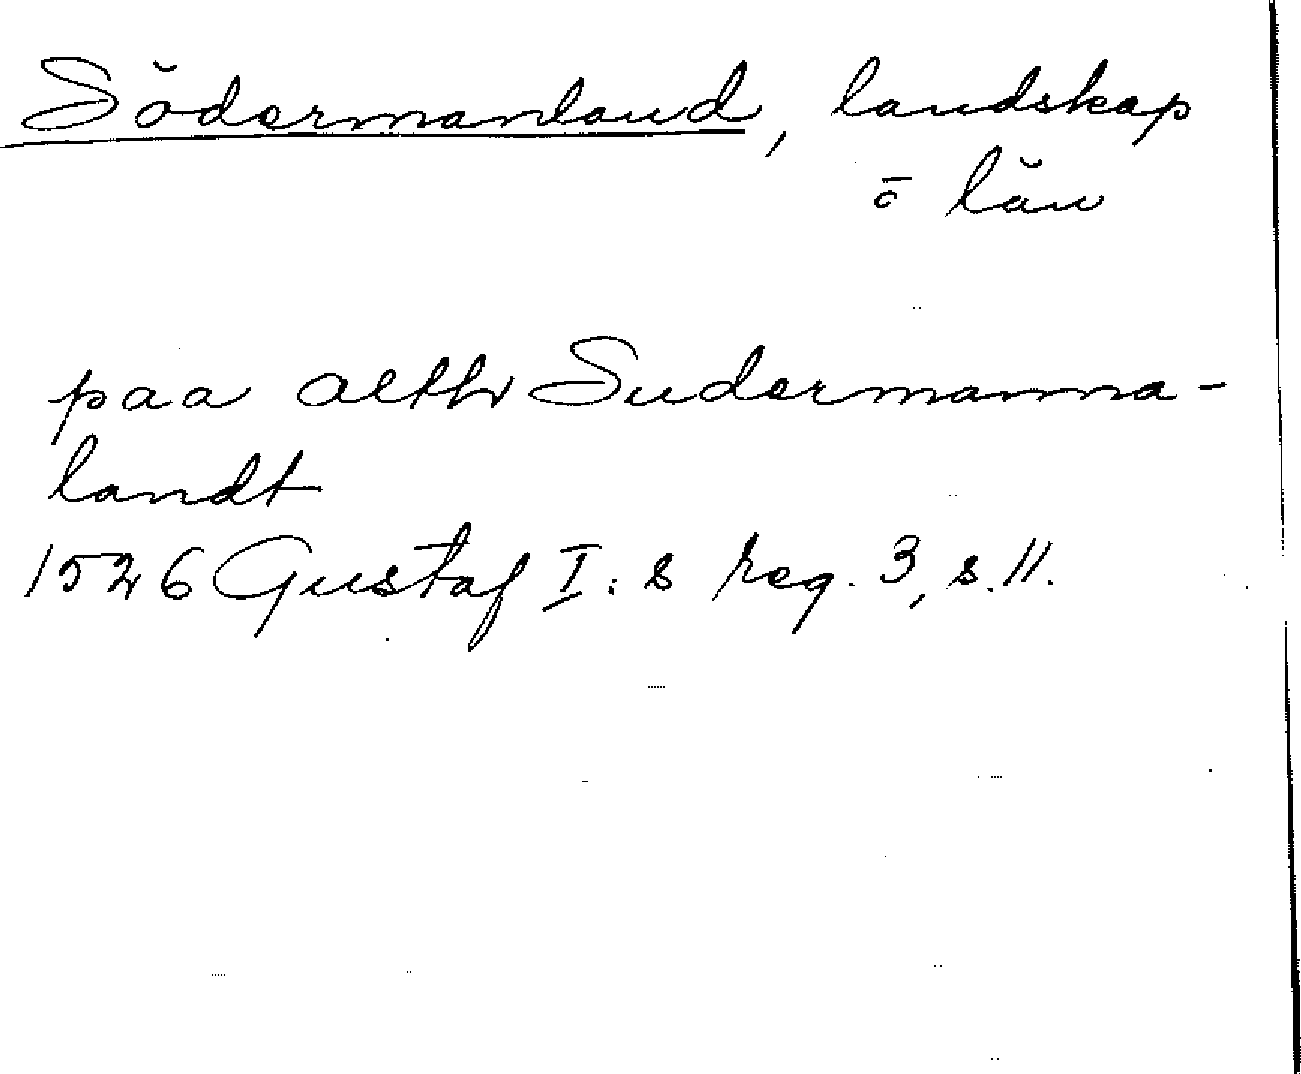 Södermanland, landskap
o län
paa alth Sudermanna-
landt
1526 Gustaf I:s reg. 3, s. 11.